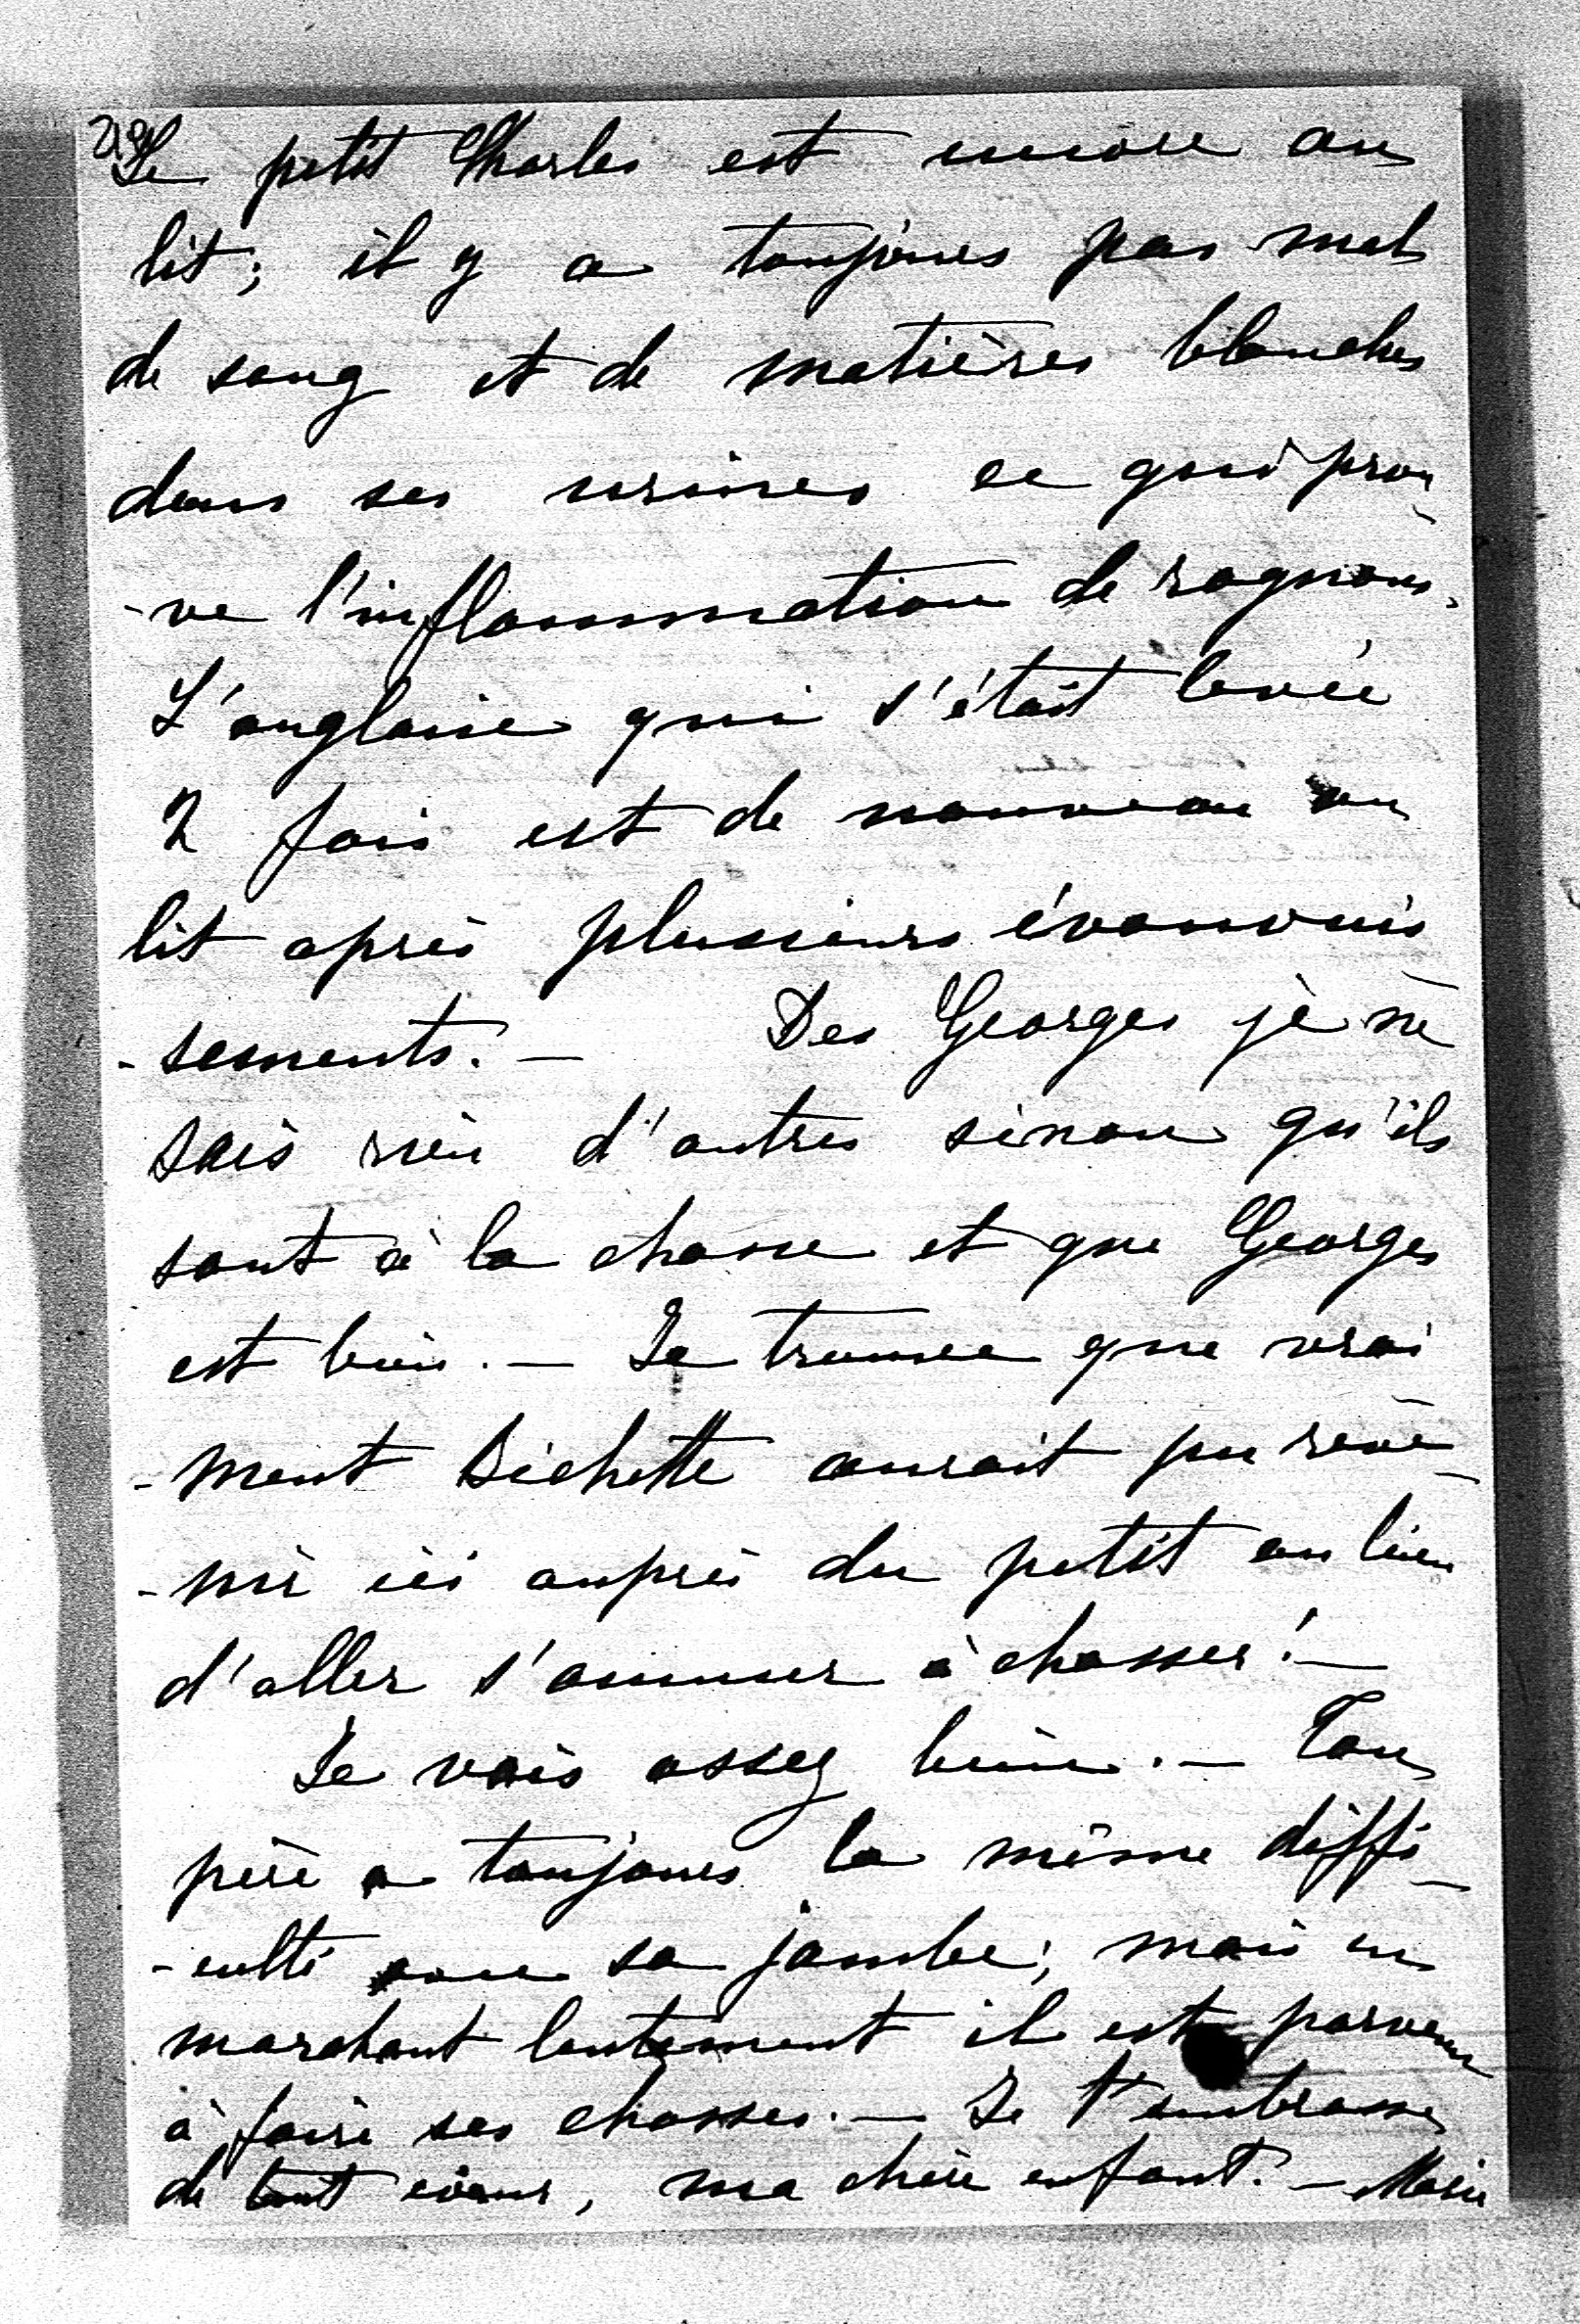 Le petit Charles est encore au
lit; il y a toujours pas mal
de sang et de matières blanches
dans ses urines ce qui prou-
-ve l'inflammation de rognons.
L'anglaise qui s'était levée
2 fois est de nouveau au
lit après plusieurs évanouis
-sements. — Des Georges je ne
sais rien d'autres sinon qu'ils
sont à la chasse et que Georges
est bien. — Je trouve que vrai
-ment Bichette aurait pu reve-
-nir ici auprès du petit au lieu
d'aller s'amuser à chasser! —
Je vais assez bien. — Ton
père a toujours la même diffi-
-culté avec sa jambe; mais en
marchant lentement il est parvenu
à faire ses chasses. — Je t'embrasse
de tout cœur, ma chère enfant. — Marie